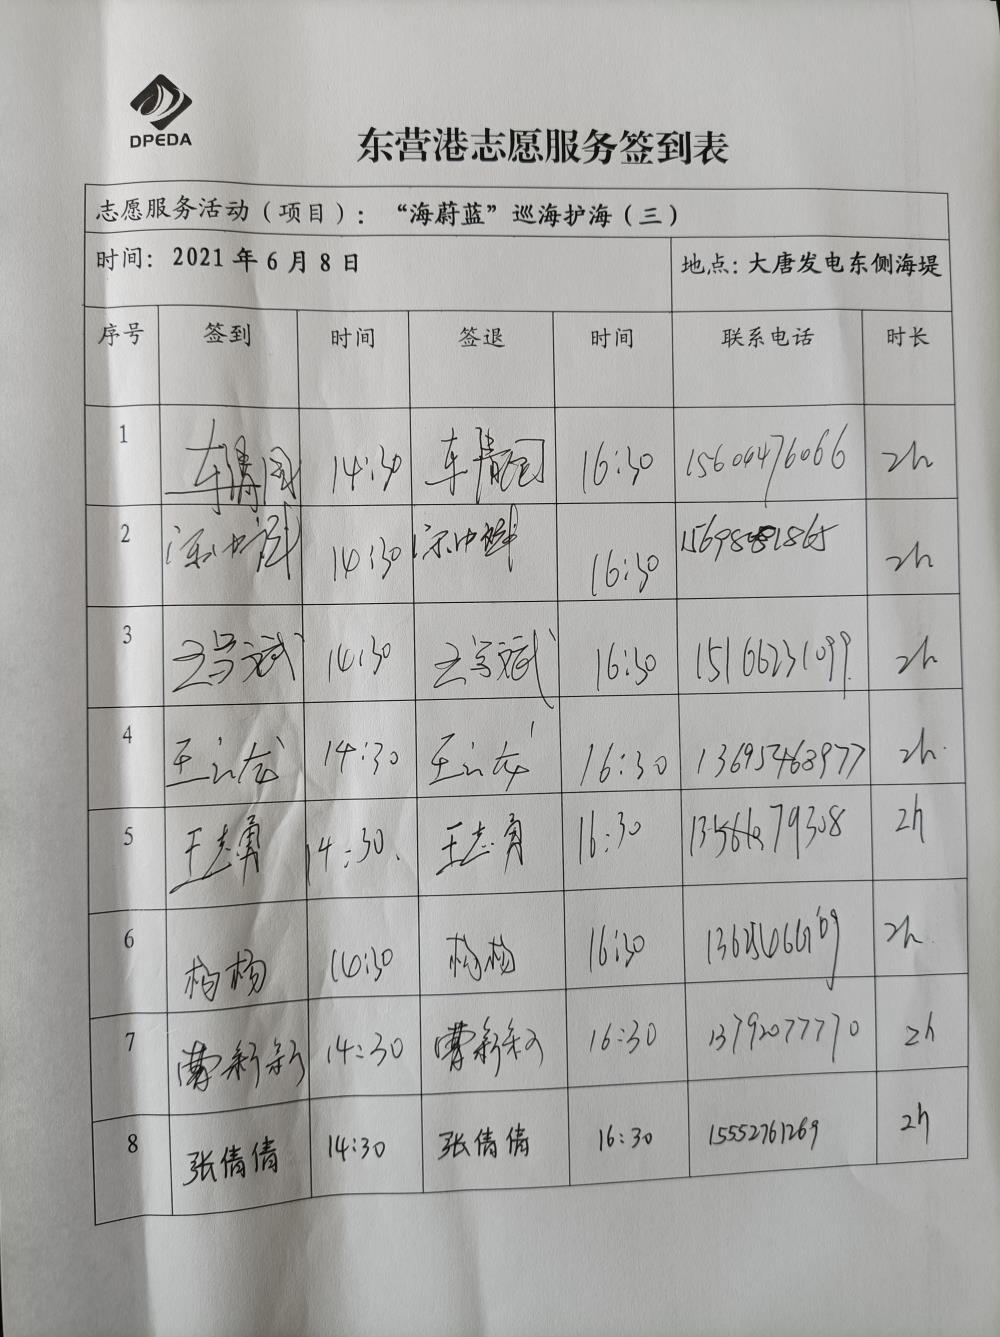 DPEDA
东营港志愿服务签到表
志愿服务活动（项目）：“海蔚蓝”巡海护海（三）
时间：2021 年 6 月 8 日 地点：大唐发电东侧海堤
序号 签到 时间 签退 时间 联系电话 时长
1 14:30 16:30 15604476066 2h
2 14:30 16:30 2h
3 14:30 16:30 15166231099 2h
4 王云龙 14:30 王云龙 16:30 13695468977 2h
5 王志勇 14:30 王志勇 16:30 2h
6 杨杨 14:30 杨杨 16:30 2h
7 曹新新 14:30 曹新新 16:30 13792077770 2h
8 张倩倩 14:30 张倩倩 16:30 15552761269 2h